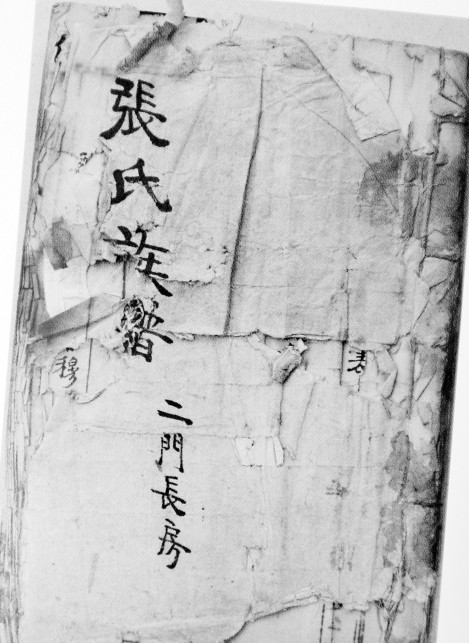 張氏族譜
二門長房
穆